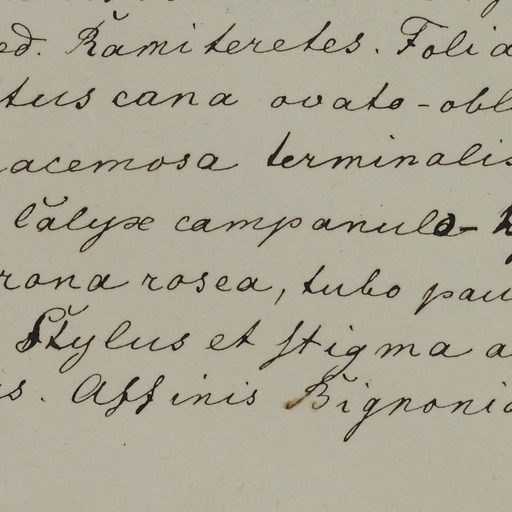 ed. Rami teretes. Folia
tus cana ovato-obl
acemosa terminalis
Calyx campanulo-
rona rosea, tubo pau
Stylus et stigma a
is. Affinis Bignonia